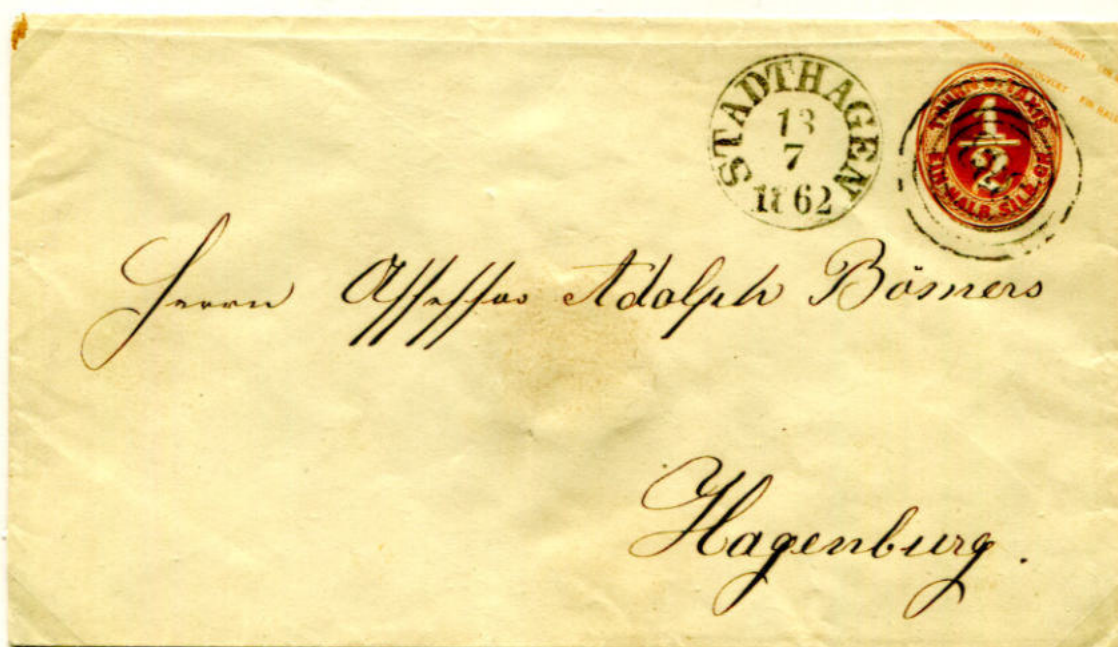 STADTHAGEN
13
7
1862
THURN U. TAXIS
1/2
EIN HALB. SILB. GR.
Herrn Assessor Adolph Bömers
Hagenburg.